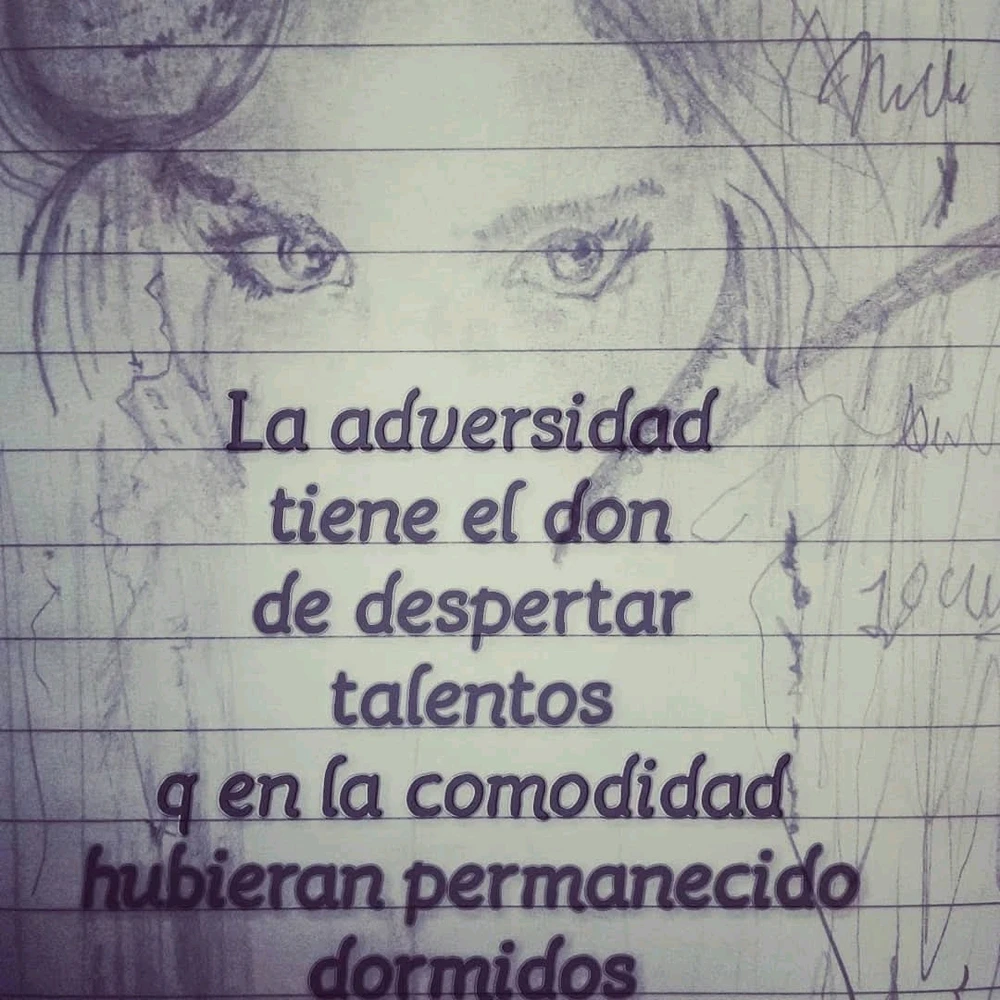 La adversidad
tiene el don
de despertar
talentos
q en la comodidad
hubieran permanecido
dormidos